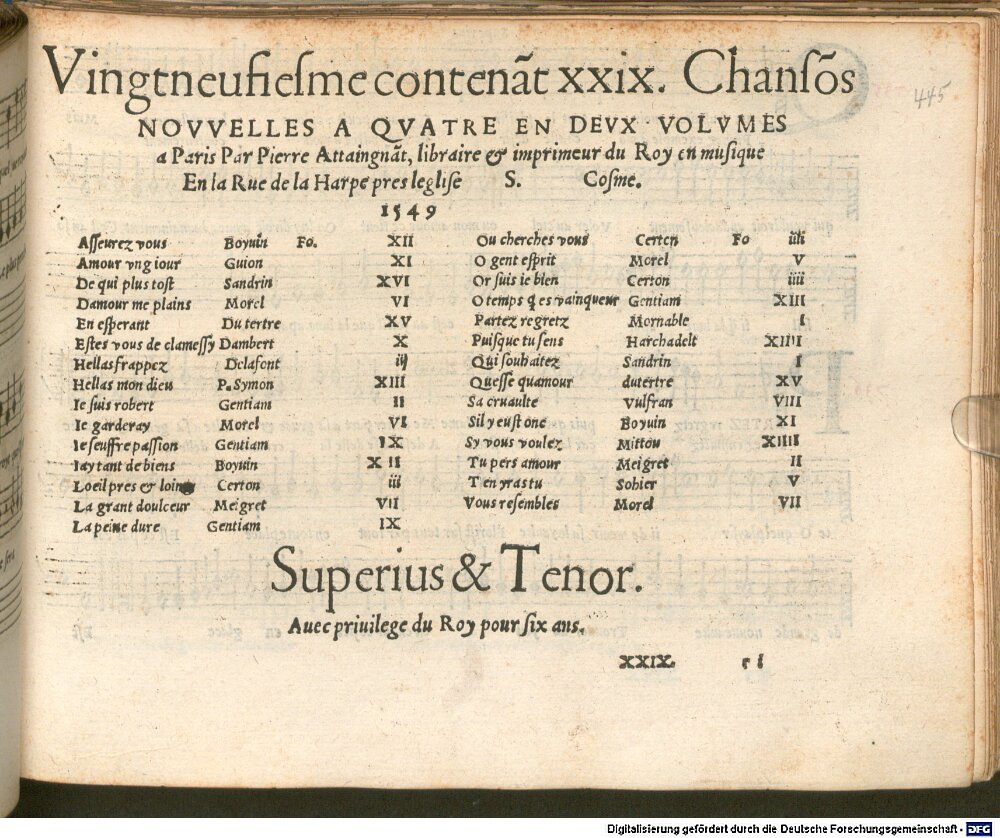 Vingtneufiesme contenãt xxix. Chansõs
NOVVELLES A QVATRE EN DEVX VOLVMES
a Paris Par Pierre Attaingnãt, libraire & imprimeur du Roy en musique
En la Rue de la Harpe pres leglise S. Cosme.
1549
445
Asseurez vous Boyuin Fo. XII
Amour vng iour Guion XI
De qui plus tost Sandrin XVI
Damour me plains Morel VI
En esperant Du tertre XV
Estes vous de clamessy Dambert X
Hellas frappez Delafont iij
Hellas mon dieu P. Symon XIII
Ie suis robert Gentiam II
Ie garderay Morel VI
Ie seuffre passion Gentiam IX
Iay tant de biens Boyuin XII
Loeil pres & loing Certon iii
La grant doulceur Meigret VII
La peine dure Gentiam IX
Ou cherches vous Certen Fo iiii
O gent esprit Morel V
Or suis ie bien Certon iiii
O temps q es vainqueur Gentiam XIII
Partez regretz Mornable I
Puisque tu sens Harchadelt XIIII
Qui souhaitez Sandrin I
Quesse quamour dutertre XV
Sa cruaulte Vulfran VIII
Sil y eust onc Boyuin XI
Sy vous voulez Mittou XIIII
Tu pers amour Meigret II
Ten yras tu Sohier V
Vous resembles Morel VII
Superius & Tenor.
Auec priuilege du Roy pour six ans.
XXIX. r i
Digitalisierung gefördert durch die Deutsche Forschungsgemeinschaft - DFG